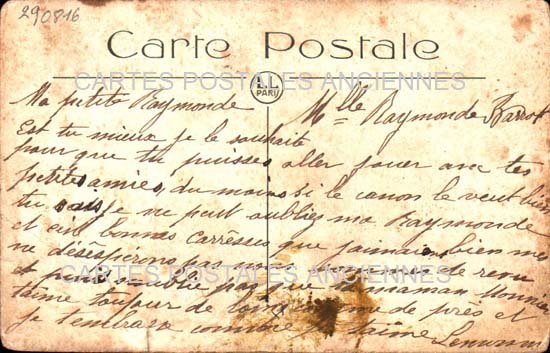 290816
Carte Postale
CARTES POSTALES ANCIENNES
PARIS
Ma petite Raymonde
Mlle Raymonde Barrot
Est tu mieux je le souhaite
pour que tu puisses aller jouer avec tes
petites amies, du moins si le canon le veut bien
tu sais je ne peut oubliez ma Raymonde
et ces bonnes carresses que j'aimais bien mes
ne désespérons pas
CARTES POSTALES ANCIENNES
et pas que ta maman Monsieur
t'aime toujour de loin comme de près et
je t'embrasse comme je t'aime